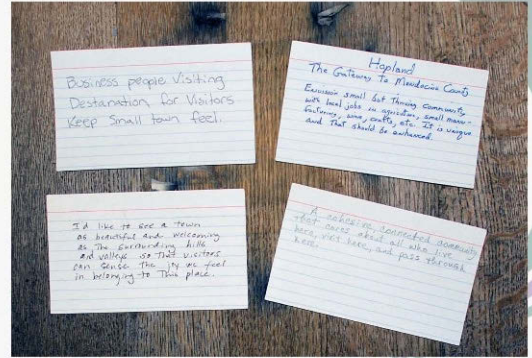 Business people visiting
Destanation for Visitors
Keep Small town feel.
Hopland
The Gateway To Mendocino County
Envision small but thriving community
with local jobs in agriculture, small manu-
facturing, wine, crafts, etc. It is unique
and that should be enhanced.
I'd like to see a town
as beautiful and welcoming
as the surrounding hills
and valleys so that visitors
can sense the joy we feel
in belonging to this place.
A cohesive, connected community
that cares about all who live
here, visit here, and pass through
here.